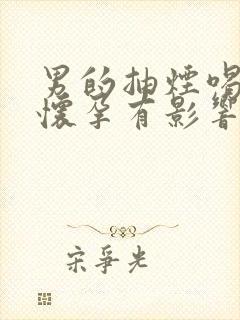 男的抽煙喝
懷孕有影響
宋爭光